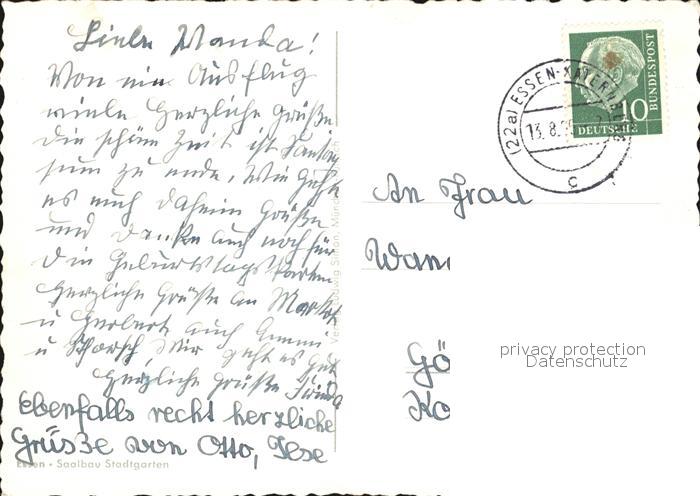 Liebe Wanda!
Von ein Ausflug
viele herzliche Grüße
die schöne Zeit ist
zu ende. Wie geht
es euch daheim Grüße
und Danke auch noch für
die Geburtstagskarten
Herzliche Grüße an
u Herbert auch Emmi
u Schorsch, Mir geht es gut
Herzliche Grüße
Ebenfalls recht herzliche
Grüsse von Otto,
Essen • Saalbau Stadtgarten
(22a) ESSEN
13.8.
c
10
DEUTSCHE
BUNDESPOST
An Frau
Wan
Gö
Ko
privacy protection
Datenschutz